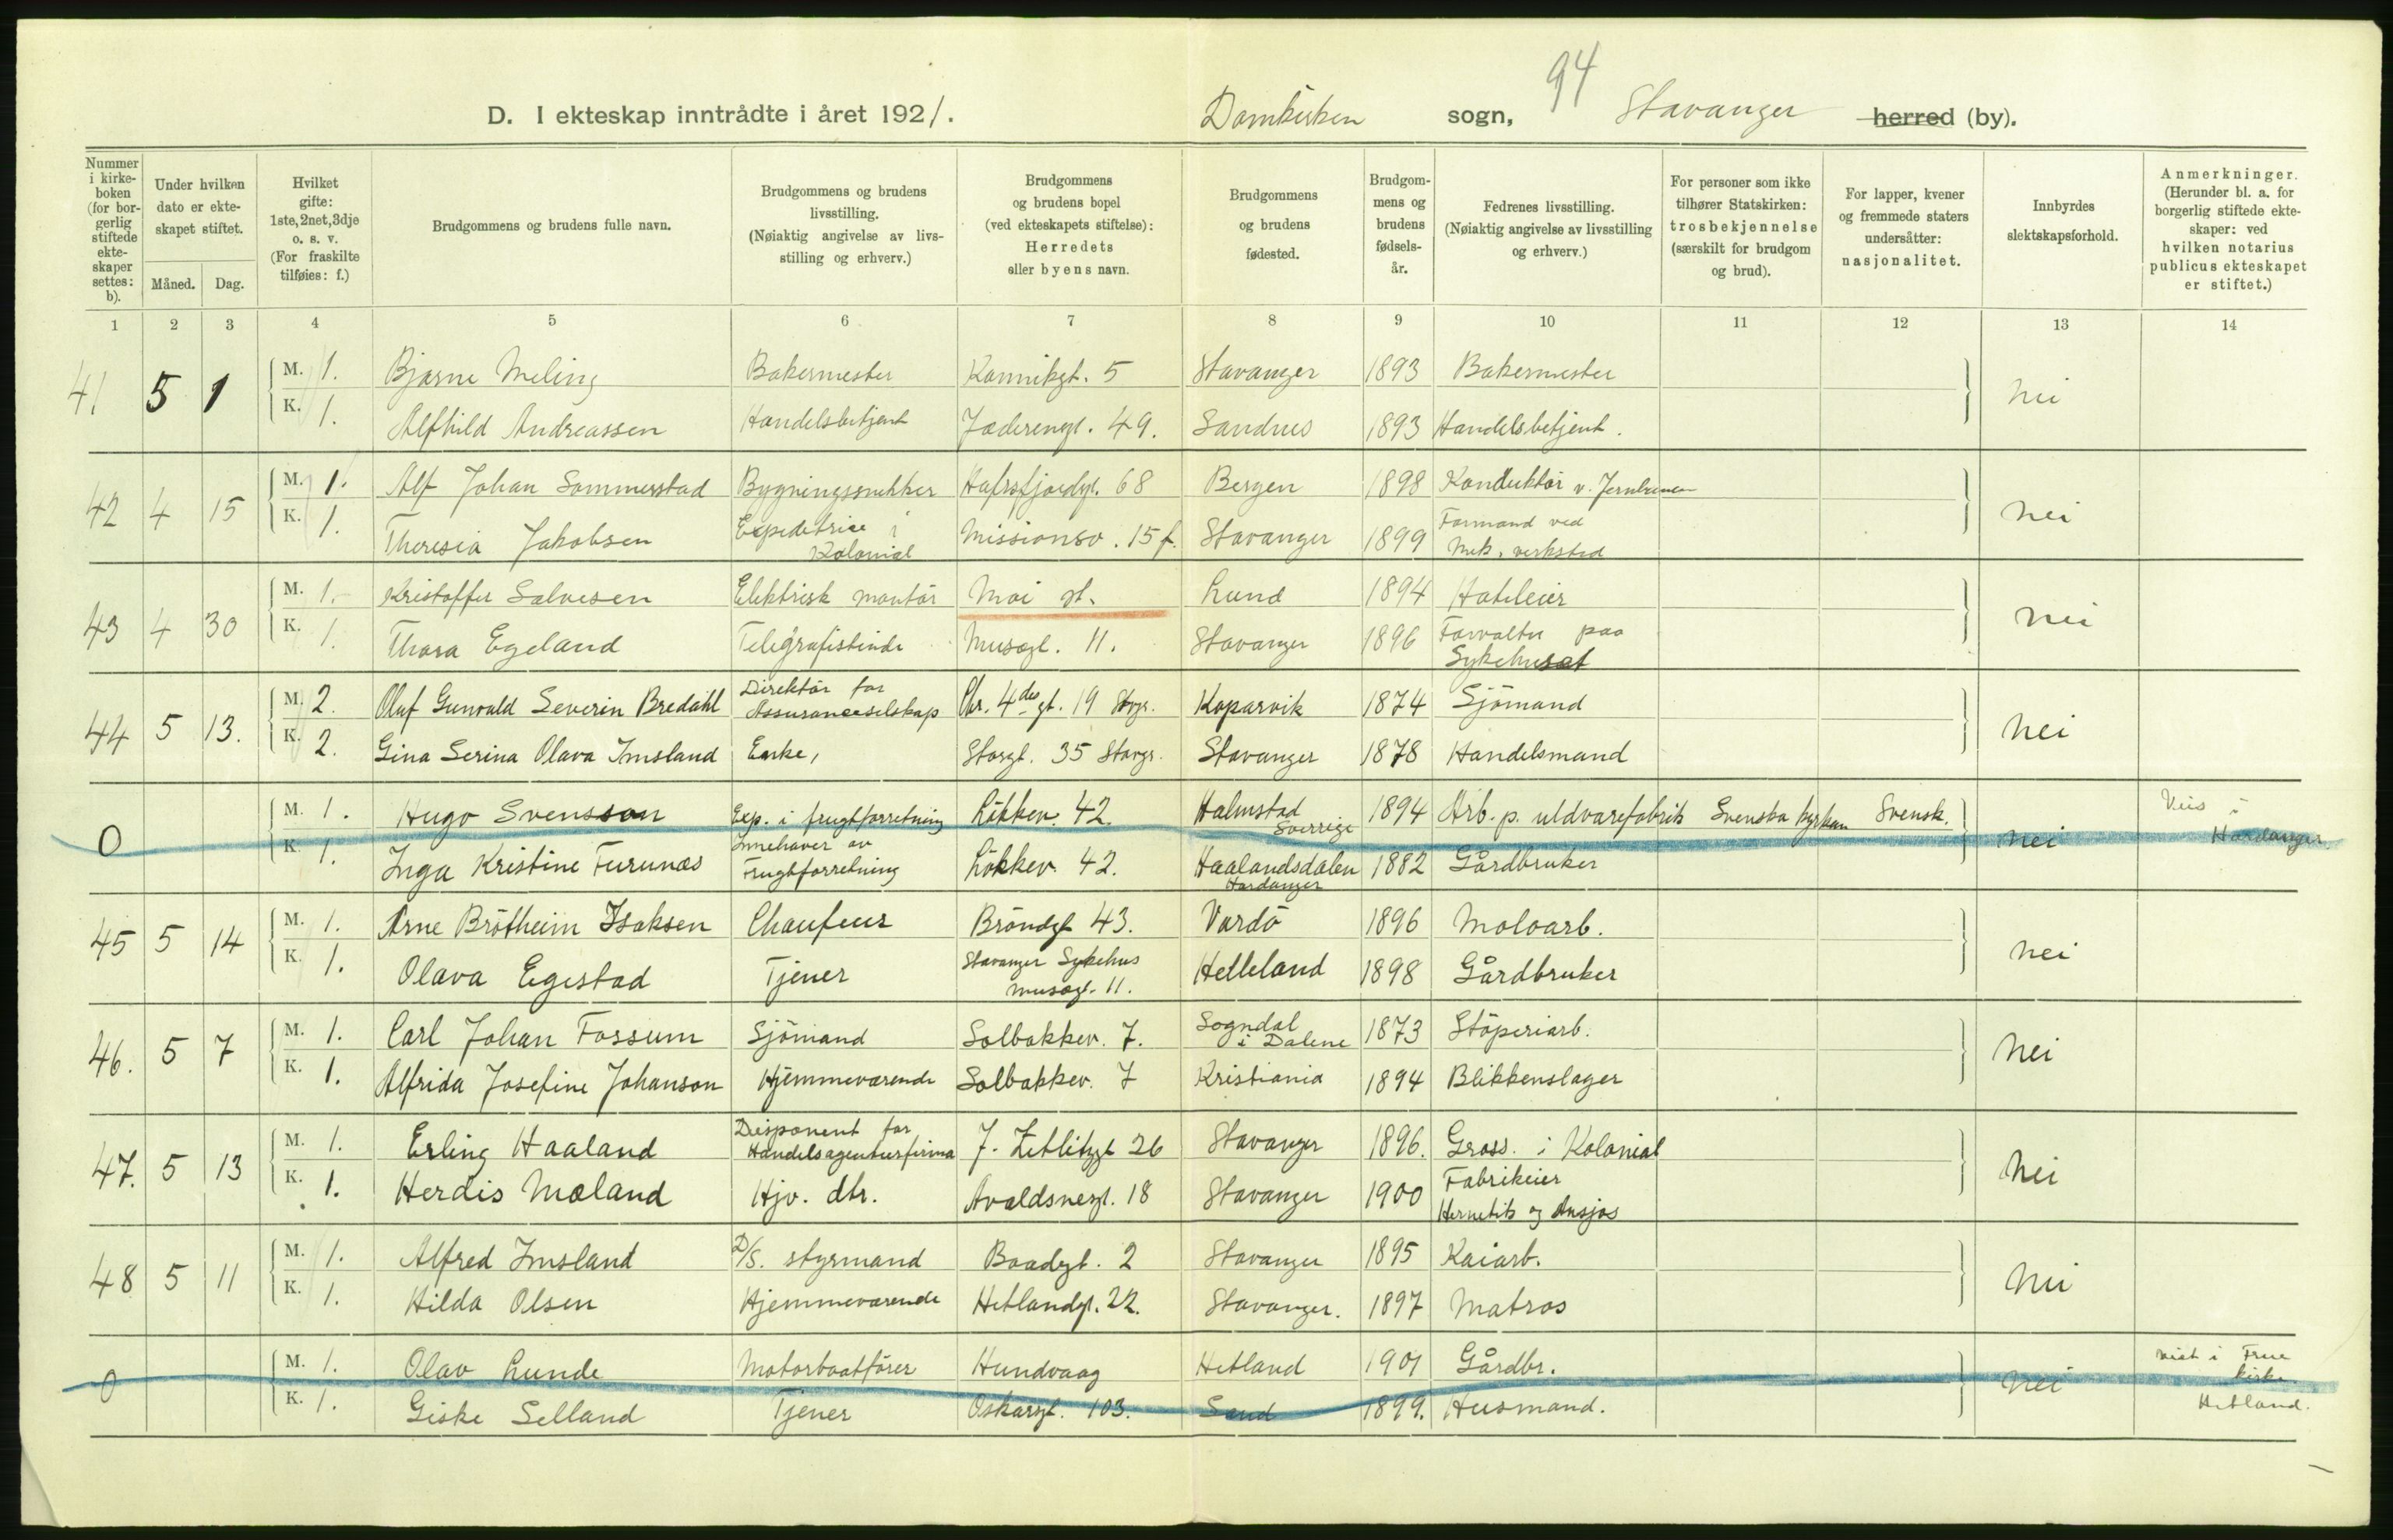 94
D. I ekteskap inntrådte i året 1921. Domkirken sogn, Stavanger herred (by).
Nummer i kirkeboken (for borgerlig stiftede ekteskaper settes: b).
Under hvilken dato er ekteskapet stiftet.
Måned. Dag.
Hvilket gifte: 1ste, 2net, 3dje o. s. v. (For fraskilte tilføies: f.)
Brudgommens og brudens fulle navn.
Brudgommens og brudens livsstilling. (Nøiaktig angivelse av livsstilling og erhverv.)
Brudgommens og brudens bopel (ved ekteskapets stiftelse): Herredets eller byens navn.
Brudgommens og brudens fødested.
Brudgommens og brudens fødselsår.
Fedrenes livsstilling. (Nøiaktig angivelse av livsstilling og erhverv.)
For personer som ikke tilhører Statskirken: trosbekjennelse (særskilt for brudgom og brud).
For lapper, kvener og fremmede staters undersåtter: nasjonalitet.
Innbyrdes slektskapsforhold.
Anmerkninger. (Herunder bl. a. for borgerlig stiftede ekteskaper: ved hvilken notarius publicus ekteskapet er stiftet.)
1 2 3 4 5 6 7 8 9 10 11 12 13 14
41 5 1 M. 1. Bjarne Meling Bakermester Kannikgt. 5 Stavanger 1893 Bakermester nei
K. 1. Alfhild Andreassen Handelsbetjent Jæderengt. 49. Sandnes 1893 Handelsbetjent.
42 4 15 M. 1. Alf Johan Sommerstad Bygningssnekker Hafrsfjordgt. 68 Bergen 1898 Konduktör v. Jernbanen nei
K. 1. Theresia Jakobsen Expeditrise i Kolonial Missionsv. 15 f. Stavanger 1899 Formand ved Mek. verksted
43 4 30 M. 1. Kristoffer Salvesen Elektrisk montör Moi st. Lund 1894 Hoteleier nei
K. 1. Thora Egeland Telegrafistinde Musegt. 11. Stavanger 1896 Forvalter paa Sykehuset
44 5 13. M. 2. Oluf Gunvald Severin Bredahl Direktör for Assuranceselskap Chr. 4des gt. 19 Stvgr. Kopervik 1874 Sjömand nei
K. 2. Gina Serina Olava Imsland Enke, Storgt. 35 Stavgr. Stavanger 1878 Handelsmand
0 M. 1. Hugo Svensson Exp. i frugtforretning Lökkev. 42. Halmstad Sverrige 1894 Arb. p. uldvarefabrik Svenska kyrkan Svensk. nei Viis i Hardanger.
K. 1. Inga Kristine Furunæs Innehaver av Frugtforretning Lökkev. 42. Haalandsdalen Hardanger 1882 Gårdbruker
45 5 14 M. 1. Arne Brötheim Isaksen Chaufeur Bröndgt 43. Vardö 1896 Moloarb. nei
K. 1. Olava Egestad Tjener Stavanger Sykehus Musegt. 11. Helleland 1898 Gårdbruker
46. 5 7 M. 1. Carl Johan Fossum Sjömand Solbakkev. 7. Sogndal i Dalene 1873 Stöperiarb. nei
K. 1. Alfrida Josefine Johanson Hjemmeværende Solbakkev. 7 Kristiania 1894 Blikkenslager
47. 5 13 M. 1. Erling Haaland Disponent for Handelsagenturfirma J. Zetlitzgt 26 Stavanger 1896. Gross. i Kolonial nei
K. 1. Herdis Mæland Hjv. dtr. Avaldsnesgt. 18 Stavanger 1900 Fabrikeier Hermetik og Ansjos
48 5 11 M. 1. Alfred Imsland D/S. styrmand Baadgt. 2 Stavanger 1895 Kaiarb. nei
K. 1. Hilda Olsen Hjemmeværende Hetlandgt. 22. Stavanger. 1897 Matros
0 M. 1. Olav Lunde Motorbaatförer Hundvaag Hetland 1901 Gårdbr. nei viet i Frue kirke. Hetland.
K. 1. Giske Selland Tjener Oskarsgt. 103. Sand 1899. Husmand.